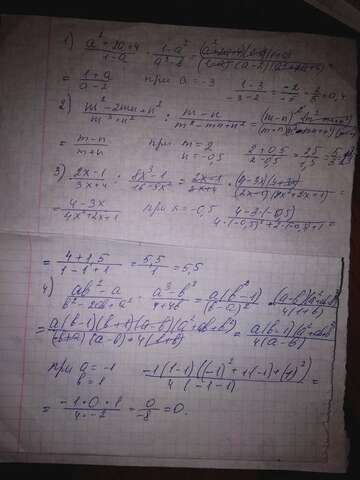 1) (a²+2a+4)/(1-a) · (1-a²)/(a³-8) = (a²+2a+4)(1-a)(1+a)/(1-a)(a-2)(a²+2a+4) =
= (1+a)/(a-2) при a=-3 (1-3)/(-3-2) = -2/-5 = 0,4
2) (m²-2mn+n²)/(m³+n³) : (m-n)/(m²-mn+n²) =
= (m-n)/(m+n) при m=2 n=-0,5 (2+0,5)/(2-0,5) = 2,5/1,5 = 5/3
3) (2x-1)/(3x+4) : (8x³-1)/(16-9x²) = (2x-1)/(3x+4) ·
= (4-3x)/(4x²+2x+1) при x=-0,5 (4-3·(-0,5))/(4·(-0,5)²+2·(-0,5)+1) =
= (4+1,5)/(1-1+1) = 5,5/1 = 5,5
4) (ab²-a)/(b²-2ab+a²) · (a³-b³)/(4+4b) = a(b²-1)/(b-a)² ·
= a(b-1)(b+1)(a-b)(a²+ab+b²)/(a-b)(a-b)4(b+1) = a(b-1)(a²+ab+b²)/4(a-b)
при a=-1 b=1 -1(1-1)((-1)²+1(-1)+(1)²)/4(-1-1) =
= (-1·0·1)/(4·-2) = 0/-8 = 0.